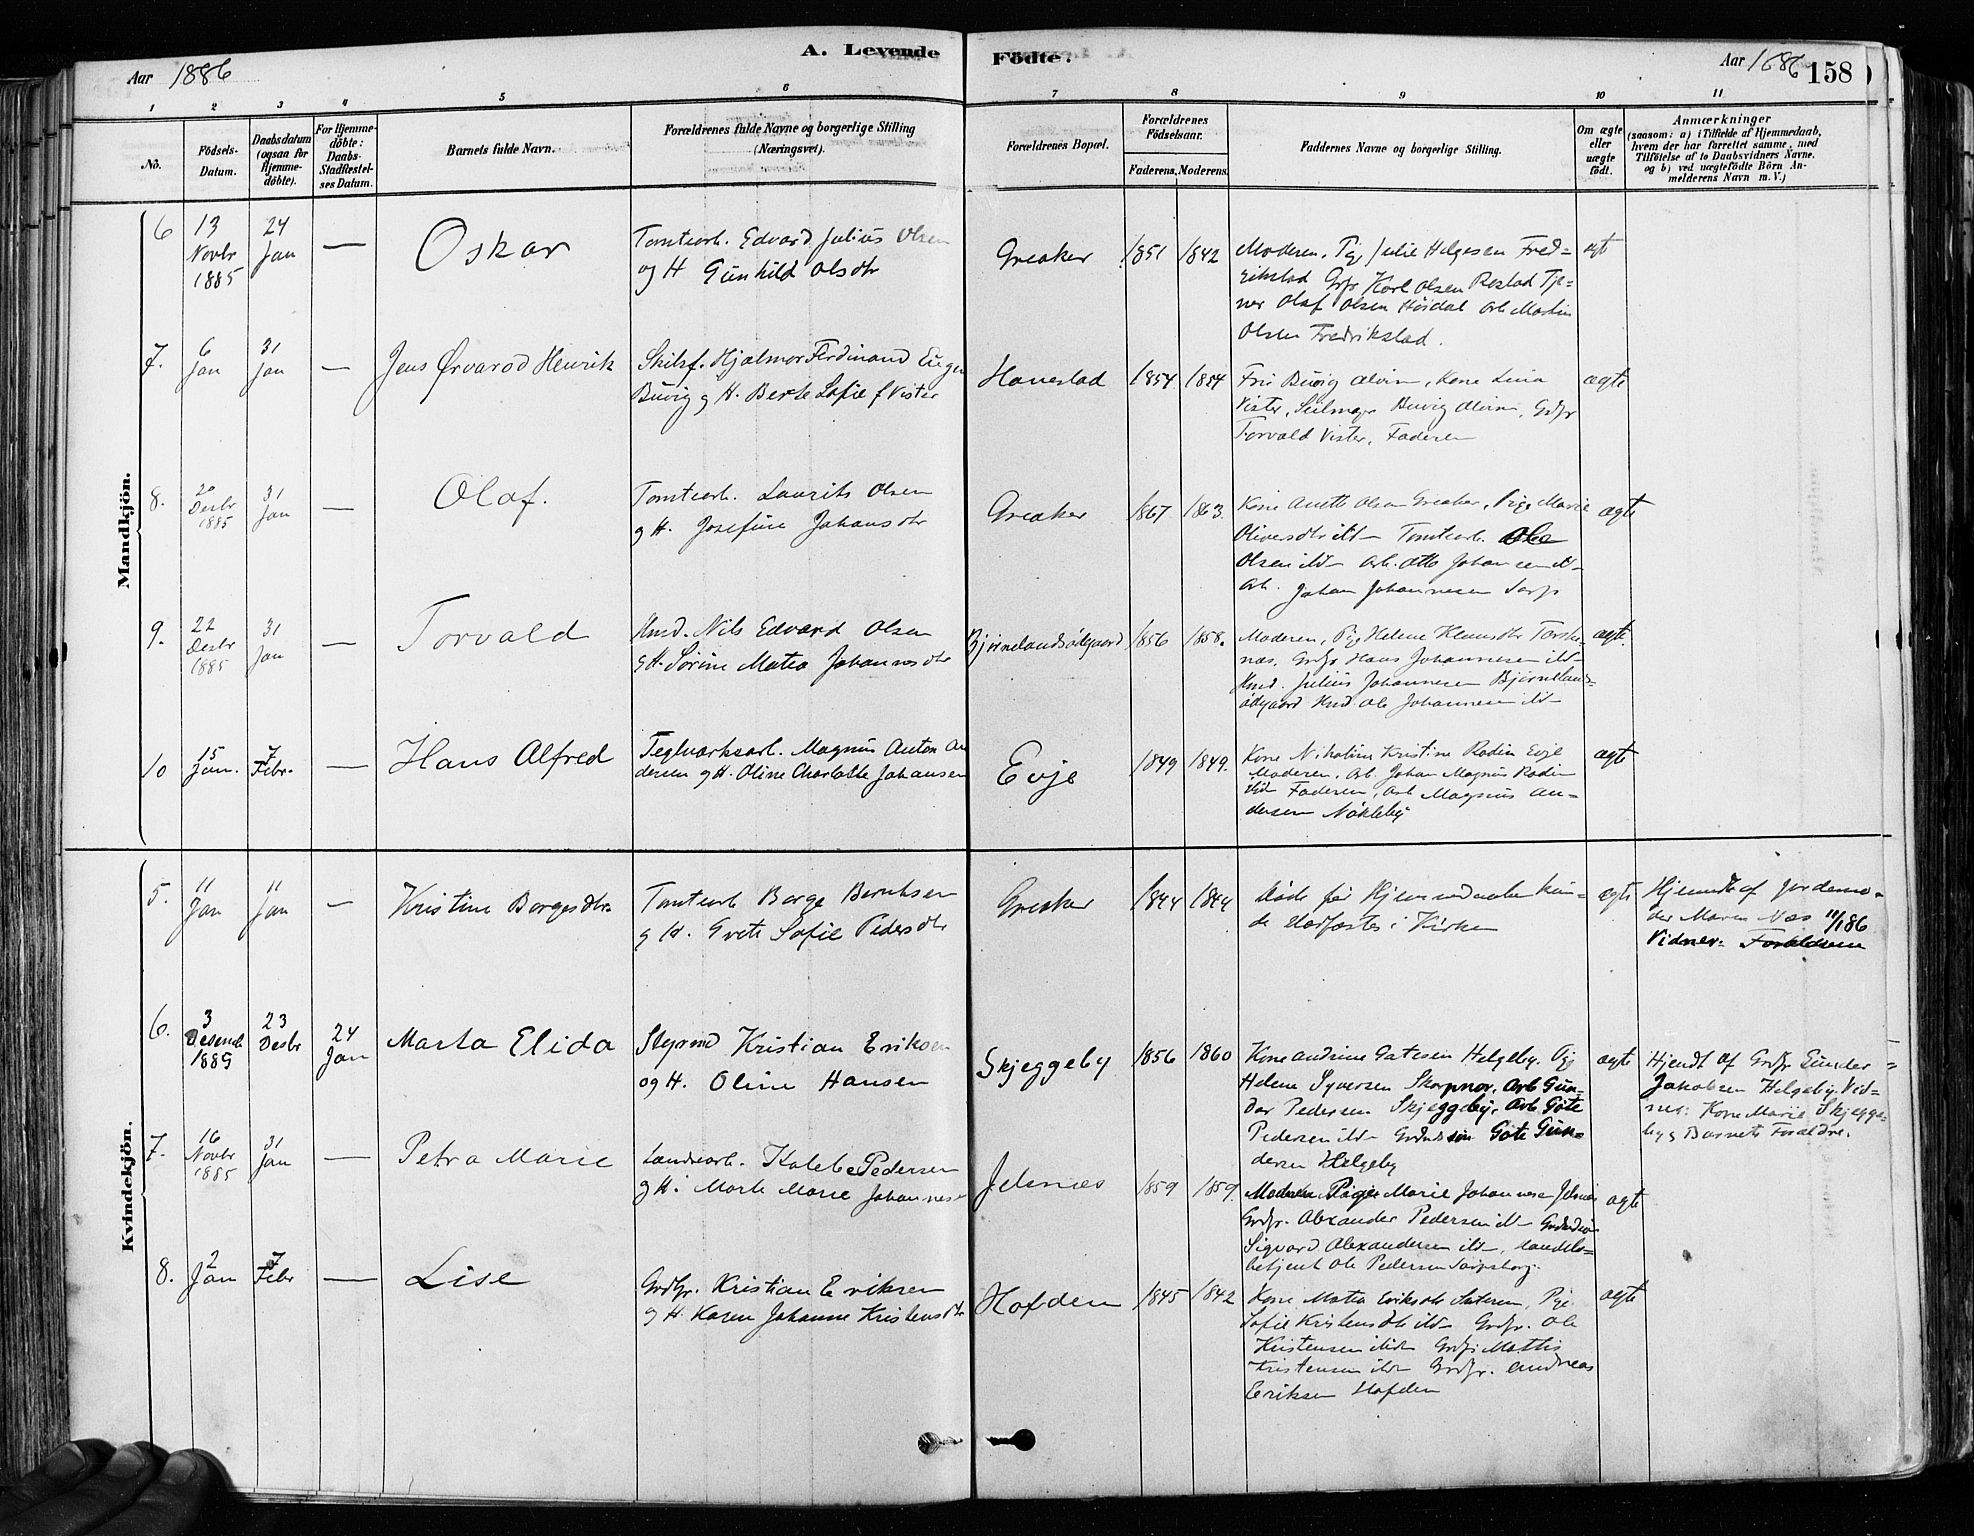 A. Levende
Födte.
Aar 1886
Aar 1886
158
1 2 3 4 5 6 7 8 9 10 11
No.
Födsels-
Datum.
Daabsdatum
(ogsaa for
Hjemme-
döbte).
For Hjemme-
döbte:
Daabs-
Stadfæstel-
ses Datum.
Barnets fulde Navn.
Forældrenes fulde Navne og borgerlige Stilling
(Næringsvei).
Forældrenes Bopæl.
Forældrenes
Födselsaar.
Faderens.
Moderens.
Faddernes Navne og borgerlige Stilling.
Om ægte
eller
uægte
födt.
Anmærkninger
(saasom: a) i Tilfælde af Hjemmedaab,
hvem der har forrettet samme, med
Tilföielse af to Daabsvidners Navne.
og b) ved uægtefödte Börn An-
melderens Navn m. V.)
Mandkjön.
6
13
Novbr
1885
24
Jan
—
Oskar
Tomtearb. Edvard Julius Olsen
og H Gunhild Olsdtr
Greaker
1851
1842
Moderen, Pige Julie Helgesen Fred=
rikstad Grdr Karl Olsen Rostad Tje=
ner Olaf Olsen Höidal Arb Martin
Olsen Fredrikstad.
ægt
7.
6
Jan
31
Jan
—
Jens Ørvarod Henrik
Skibsf. Hjalmar Ferdinand Eugen
Buvig g H. Berte Sofie f Vister
Hanestad
1854
1854
Fru Buvig Alvim, Kone Lina
Vister, Seilmager Buvig Alvim, Grdr
Torvald Vister, Faderen
ægte
8.
20
Desbr
1885
31
Jan
—
Olaf.
Tomtearb. Laurits Olsen
g H. Josefine Johansdtr
Greaker
1867
1863.
Kone Anette Olsen Greaker, Pige Marie
Oliversdtr ibd Tomtearb. Ole
Olsen ibd Arb. Otto Johansen ibd
Arb. Johan Johannesen Sarp
ægte
9.
22
Desbr
1885
31
Jan
—
Torvald
Hmd. Nils Edvard Olsen
g H. Sörine Matea Johannesdtr
Bjørnelandsödegaard
1856
1858.
Moderen, Pige Helene Klausdtr Torske=
næs, Grdr Hans Johannesen ibd
Hmd. Julius Johannesen Bjørnelands=
ödegaard Hmd Ole Johannesen ibd
ægte.
10
15
Jan.
7
Febr.
—
Hans Alfred
Teglværksarb. Magnus Anton An
dersen g H. Oline Charlotte Johansen
Evje
1849
1849.
Kone Nikoline Kristine Rodin Evje
Moderen, Arb. Johan Magnus Rodin
ibd Faderen, Arb Magnus An=
dersen Nökleby
ægte
Kvindekjön.
5.
11
Jan
11
Jan
—
Kristine Borgesdtr
Tomtearb Borge Berntsen
g H. Grete Sofie Pedersdtr
Greaker
1844
1844
Döde før Hjemmedaaben kun=
de stadfæstes i Kirken
ægte
Hjemdt af Jordemo=
der Maren Næs 11/1 86
Vidner: Forældrene
6.
3
Desemb
1885
23
Desbr
24
Jan
Marta Elida
Styrmd Kristian Eriksen
og H. Oline Hansen
Skjeggeby
1856
1860
Kone Andrine Gatesen Helgeby. Pige
Helene Syversen Skarpnor, Arb Gun=
dar Pedersen Skjeggeby, Arb Göte
Pedersen ibd Grdrssön Göte Gun=
dersen Helgeby
ægte
Hjemdt af Grdr Gunder
Jakobsen Helgeby. Vid=
ner: Kone Marie Skjegge=
by g Barnets Forældre.
7.
16
Novbr
1885
31
Jan
—
Petra Marie
Landarb. Kaleb Pedersen
g H. Marte Marie Johannes
Jelsnæs
1859
1859.
Moderen Pige Marie Johannesen Jelsnæs
Grdr. Alexander Pedersen ibd Grdrssön
Sigvard Alexandersen ibd, Handels=
betjent Ole Pedersen Sarpsborg.
ægte
8.
2
Jan
7
Febr
—
Lise
Grdr. Kristian Eriksen
g H. Karen Johanne Kristensdtr
Hafden
1845
1842
Kone Matea Eriksdtr, Pige
Sofie Kristensdtr ibd Grdr. Ole
Kristensen ibid Grdr Mattis
Kristensen ibd Grdr. Andreas
Eriksen Hafden
ægte